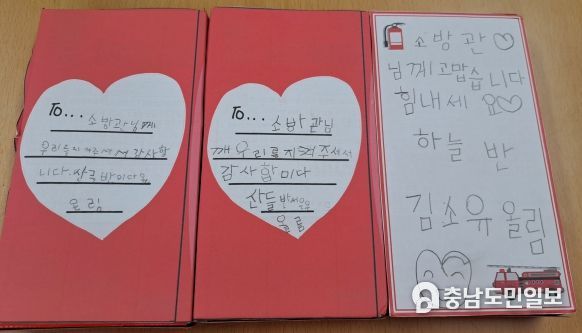 To... 소방관님께
우리를지켜주셔서 감사합
니다.산국반이다을
올림
To... 소방관님
깨 우리를지켜주셔서
감사합미다
산들반
올림
소방관♡
님께고맙습니다
힘내세요♡
하늘 반
김소유 올림
충남도민일보